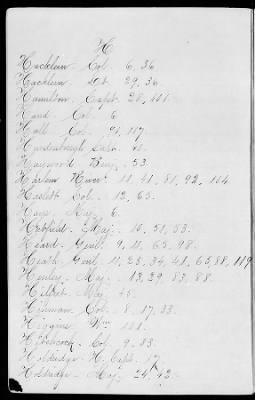 H
Hacklein Col. 6, 36
Hacklein Lt. 29, 36
Hamilton Capt. 28, 101
Hand Col. 6
Hall Col. 91, 117
Hardenbergh
Hayword Brig. 53
Harlem River 11, 41, 81, 92, 104
Haslett Col. 12, 65
Hays Maj. 6
Hatfield Maj. 10, 51, 53
Heard Genl. 9, 11, 65, 98
Heath Genl. 11, 23, 34, 41, 65, 88, 119
Henley Maj. 12, 29, 83, 88
Maj. 45
Hinman Col. 8, 17, 33
Higgins Wm 121
Hitchcock Col. 9, 33
Holdridge H. Capt. 17
Holdridge Maj. 24, 42